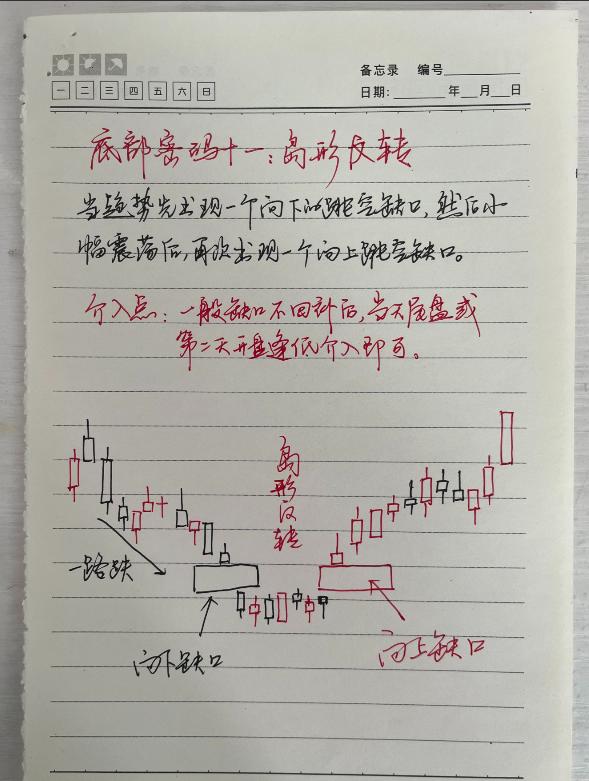 备忘录 编号
一 二 三 四 五 六 日
日期: 年 月 日
底部密码十一:岛形反转
当趋势先出现一个向下的跳空缺口,然后小
幅震荡后,再次出现一个向上跳空缺口。
介入点:一般缺口不回补后,当天尾盘或
第二天开盘逢低介入即可。
岛形反转
一路跌
向下缺口
向上缺口